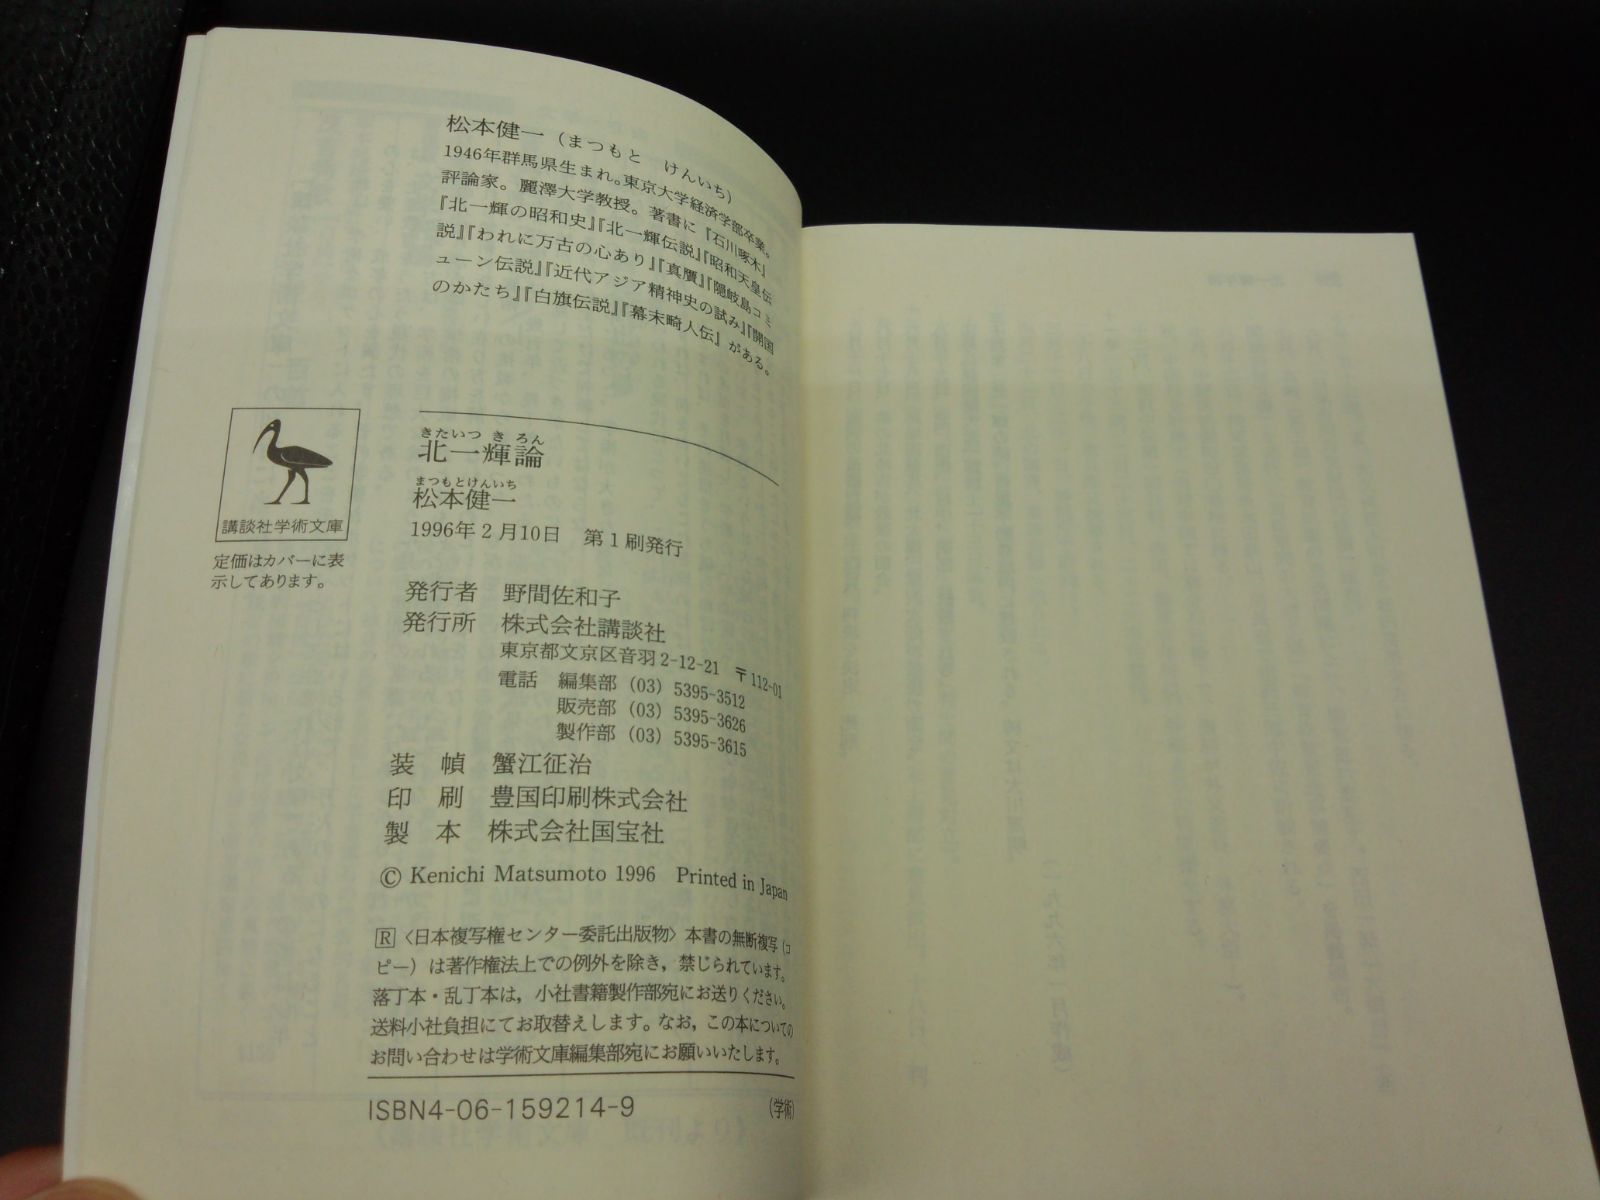 松本健一（まつもと　けんいち）
1946年群馬県生まれ。東京大学経済学部卒業。
評論家。麗澤大学教授。著書に『石川啄木』
『北一輝の昭和史』『北一輝伝説』『昭和天皇伝
説』『われに万古の心あり』『真贋』『隠岐島コミ
ューン伝説』『近代アジア精神史の試み』『開国
のかたち』『白旗伝説』『幕末畸人伝』がある。
きたいつ き ろん
北一輝論
まつもとけんいち
松本健一
1996年2月10日　第1刷発行
講談社学術文庫
定価はカバーに表
示してあります。
発行者　野間佐和子
発行所　株式会社講談社
東京都文京区音羽2-12-21　〒112-01
電話　編集部（03）5395-3512
販売部（03）5395-3626
製作部（03）5395-3615
装　幀　蟹江征治
印　刷　豊国印刷株式会社
製　本　株式会社国宝社
© Kenichi Matsumoto 1996　Printed in Japan
R〈日本複写権センター委託出版物〉本書の無断複写（コ
ピー）は著作権法上での例外を除き，禁じられています。
落丁本・乱丁本は，小社書籍製作部宛にお送りください。
送料小社負担にてお取替えします。なお，この本についての
お問い合わせは学術文庫編集部宛にお願いいたします。
ISBN4-06-159214-9　（学術）